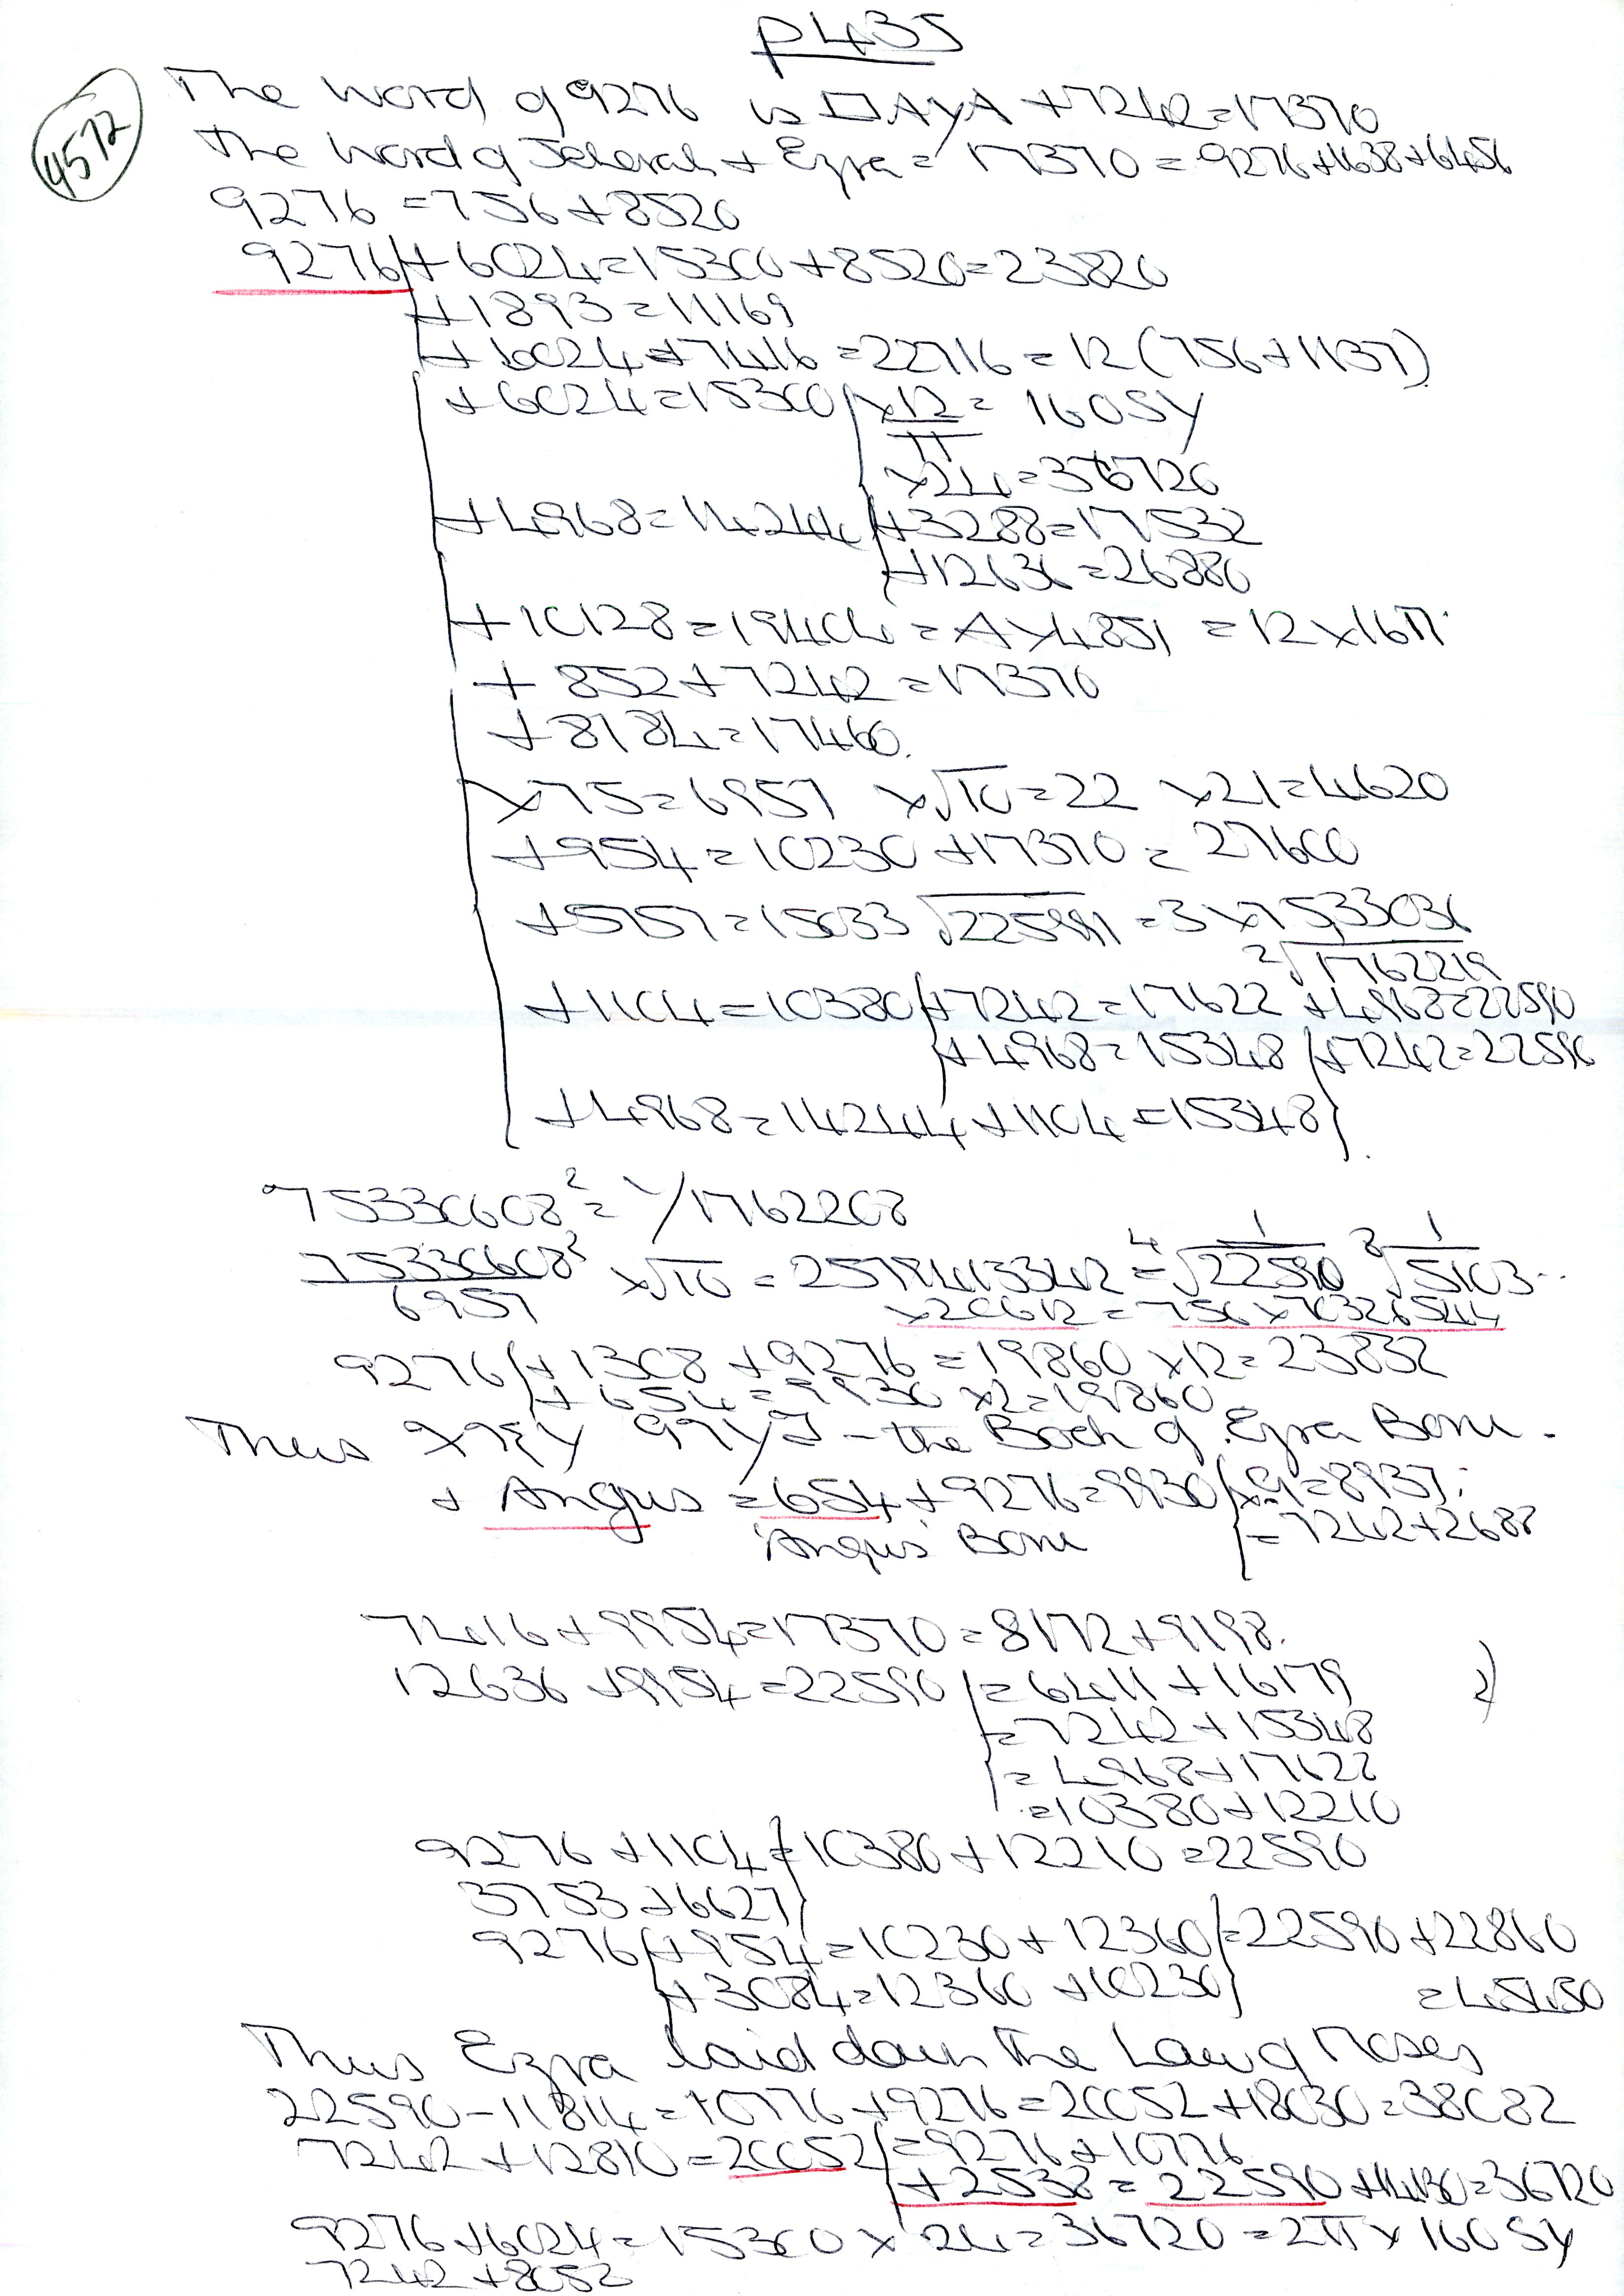 p435
4572
The Word of 9276 is DAYA + 7242 = 17370
The Word of Jeherah + Ezra = 17370 = 9276 + 1638 + 6456
9276 = 756 + 8520
9276 + 6024 = 15300 + 8520 = 23820
+ 1893 = 11169
+ 6024 + 7416 = 22716 = 12(756 + 1137)
+ 6024 = 15300 x 12 = 160SY
π
x 24 = 36720
+ 4968 = 14244 + 3288 = 17532
+ 12636 = 26880
+ 10128 = 19404 = 4 x 4851 = 12 x 16π
+ 852 + 7242 = 17370
+ 8184 = 17460.
x 75 = 6957 x √10 = 22 x 21 = 4620
+ 954 = 10230 + 17370 = 27600
+ 5757 = 15033 √225991 = 3 x 7533036
2√1762219
+ 1104 = 10380 + 7242 = 17622 + 4968 = 22590
+ 4968 = 15348 + 7242 = 22590
+ 4968 = 14244 + 1104 = 15348
75330608² = 1/1762208
75330608² x √10 = 2579413342 = 4√1/22590 8√1/5103..
6957 x 20612 = 756 x 70326544
9276 + 1308 + 9276 = 19860 x 12 = 23832
+ 654 = 9930 x 2 = 19860
Thus - the Book of Ezra Bone.
+ Angus = 654 + 9276 = 9930 x .9 = 8937.
'Angus' Bone = 7242 + 2688
7416 + 9954 = 17370 = 8172 + 9198.
12636 + 9954 = 22590 = 6411 + 16179
= 7242 + 15348
= 4968 + 17622
= 10380 + 12210
9276 + 1104 = 10380 + 12210 = 22590
3753 + 6627
9276 + 954 = 10230 + 12360 = 22590 + 22860
+ 3084 = 12360 + 10230 = 45450
Thus Ezra laid down the Law of Moses
22590 - 11814 = 10776 + 9276 = 20052 + 18030 = 38082
7242 + 12810 = 20052 = 9276 + 10776
+ 2538 = 22590 + 14130 = 36720
9276 + 6024 = 15300 x 24 = 36720 = 2π x 160SY
7242 + 8052